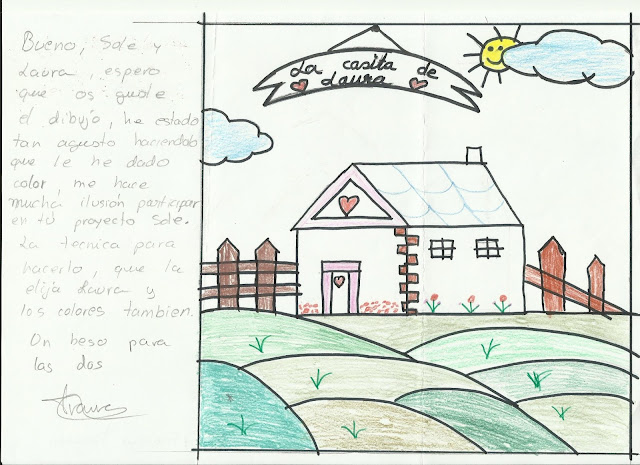 Bueno, Sole y
Laura, espero
que os guste
el dibujo, he estado
tan agusto haciendolo
que le he dado
color, me hace
mucha ilusión participar
en tú proyecto Sole.
La tecnica para
hacerlo, que la
elija Laura y
los colores tambien.
Un beso para
las dos
La casita de
Laura